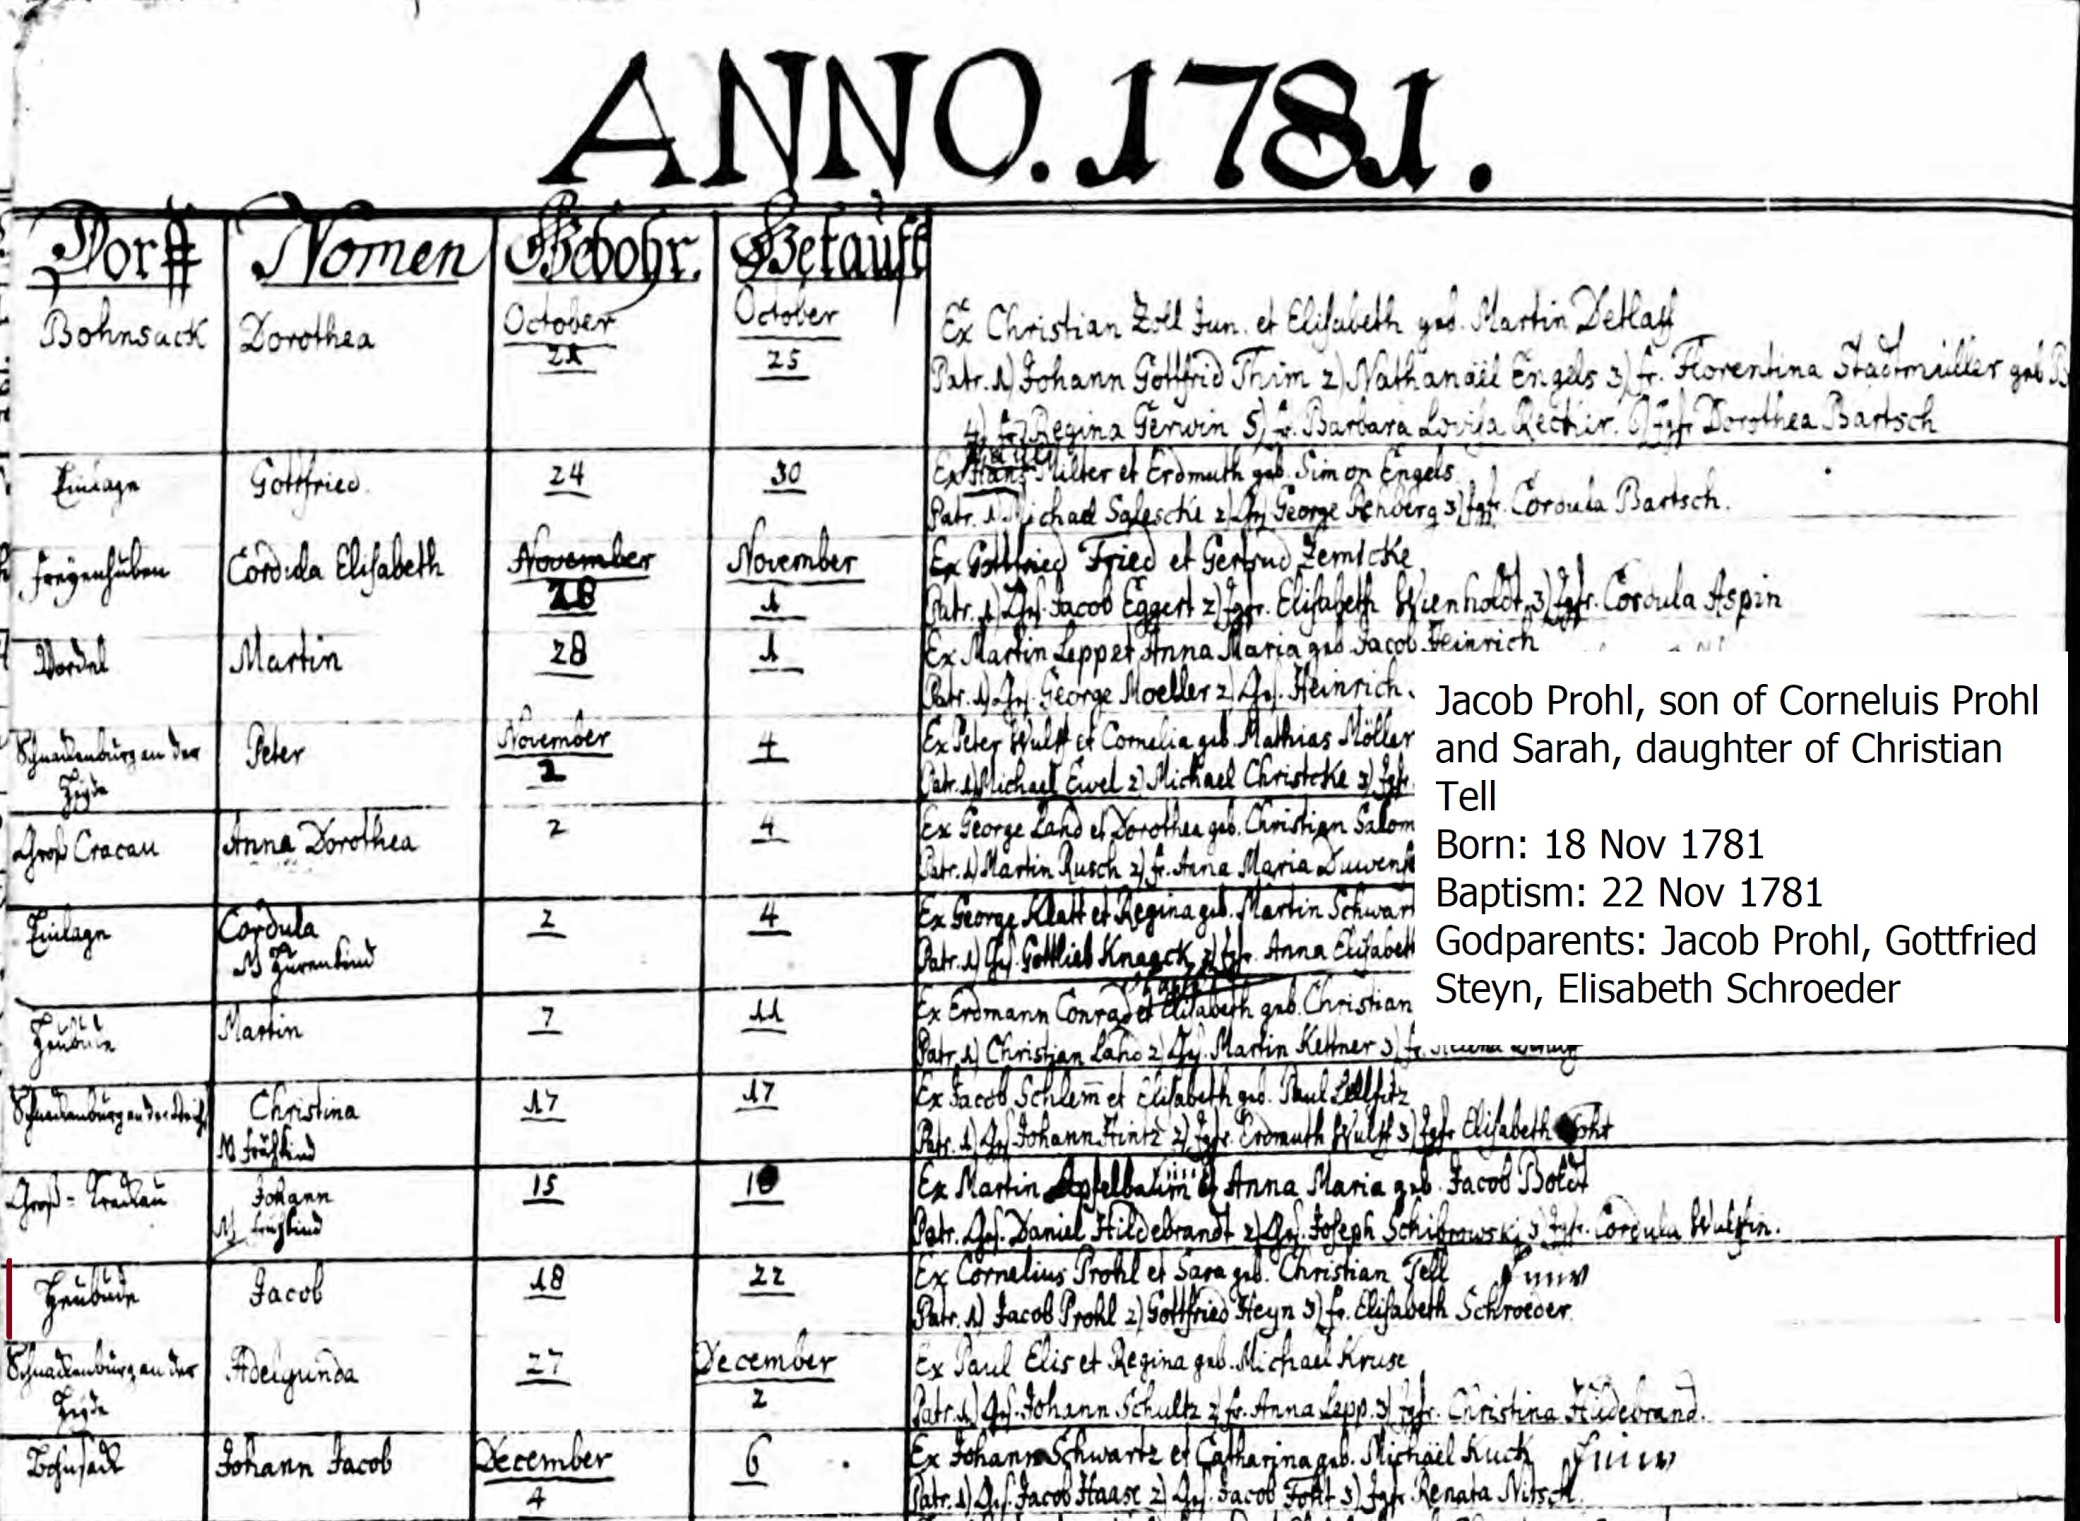 ANNO. 1781.
Dorff Nomen Gebohr. Getaufft
Bohnsack Dorothea October 21 October 25 Ex Christian Zoll Jun. et Elisabeth geb. Martin Detlaff
Patr. 1) Johann Gottfrid Thim 2) Nathanaël Engels 3) fr. Florentina Stadtmüller geb
4) fr. Regina Gerwin 5) fr. Barbara Lovisa 6) Jgfr Dorothea Bartsch
Einlage Gottfried. 24 30 Ex Milter et Erdmuth geb. Simon Engels
Patr. 1) Michael Saleschke 2) George 3) Jgfr. Cordula Bartsch.
Freyenhuben Cordula Elisabeth November November 1 Ex Gottfried Fried et Gertrud Zernicke
Patr. 1) Jacob Eggert 2) Jgfr. Elisabeth Wienholdt, 3) Jgfr. Cordula Aspin
Wordel Martin 28 1 Ex Martin Lepp et Anna Maria geb Jacob Heinrich
Patr. 1) George Moeller 2) Heinrich
Schnackenburg an der Heyde Peter November 2 4 Ex Peter Wulff et Cornelia geb. Mathias Möller
Patr. 1) Michael Ewel 2) Michael Christcke 3) Jgfr.
Groß Cracau Anna Dorothea 2 4 Ex George Land et Dorothea geb. Christian Salom
Patr. 1) Martin Rusch 2) fr. Anna Maria
Einlage Cordula 2 4 Ex George Klatt et Regina geb. Martin Schwart
N Hurenkind Patr. 1) Gottlieb Knaack, 2) Jgfr. Anna Elisabet
Heubude Martin 7 11 Ex Erdmann Conrad et Elisabeth geb. Christian
Patr. 1) Christian Land 2) Martin Kettner 3) fr.
Christina 17 17 Ex Jacob Schlem̅ et Elisabeth geb. Paul
N frühkind Patr. 1) Johann Hintz 2) Jgfr. Erdmuth Wulff 3) Jgfr Elisabeth
Groß = Cracau Johann 15 18 Ex Martin Apfelbaum et Anna Maria geb. Jacob Boldt
N frühkind Patr. Daniel Hildebrandt 2) Joseph Schibrowski 3) Jgfr. Cordula Wulffin.
Heubude Jacob 18 22 Ex Cornelius Prohl et Sara geb. Christian Tell
Patr. 1) Jacob Prohl 2) Gottfried Heyn 3) fr. Elisabeth Schroeder.
Schnackenburg an der Heyde Adelgunda 27 December 2 Ex Paul Elis et Regina geb. Michael Kruse
Patr. 1) Johann Schultz 2) fr. Anna Lepp. 3) Jgfr. Christina Hildebrand.
Bohnsack Johann Jacob December 4 6 Ex Johann Schwartz et Catharina geb. Michaël Kuck
Patr. 1) Jacob Haase 2) Jacob Foht 3) Jgfr Renata Nitsch.
Jacob Prohl, son of Corneluis Prohl
and Sarah, daughter of Christian
Tell
Born: 18 Nov 1781
Baptism: 22 Nov 1781
Godparents: Jacob Prohl, Gottfried
Steyn, Elisabeth Schroeder